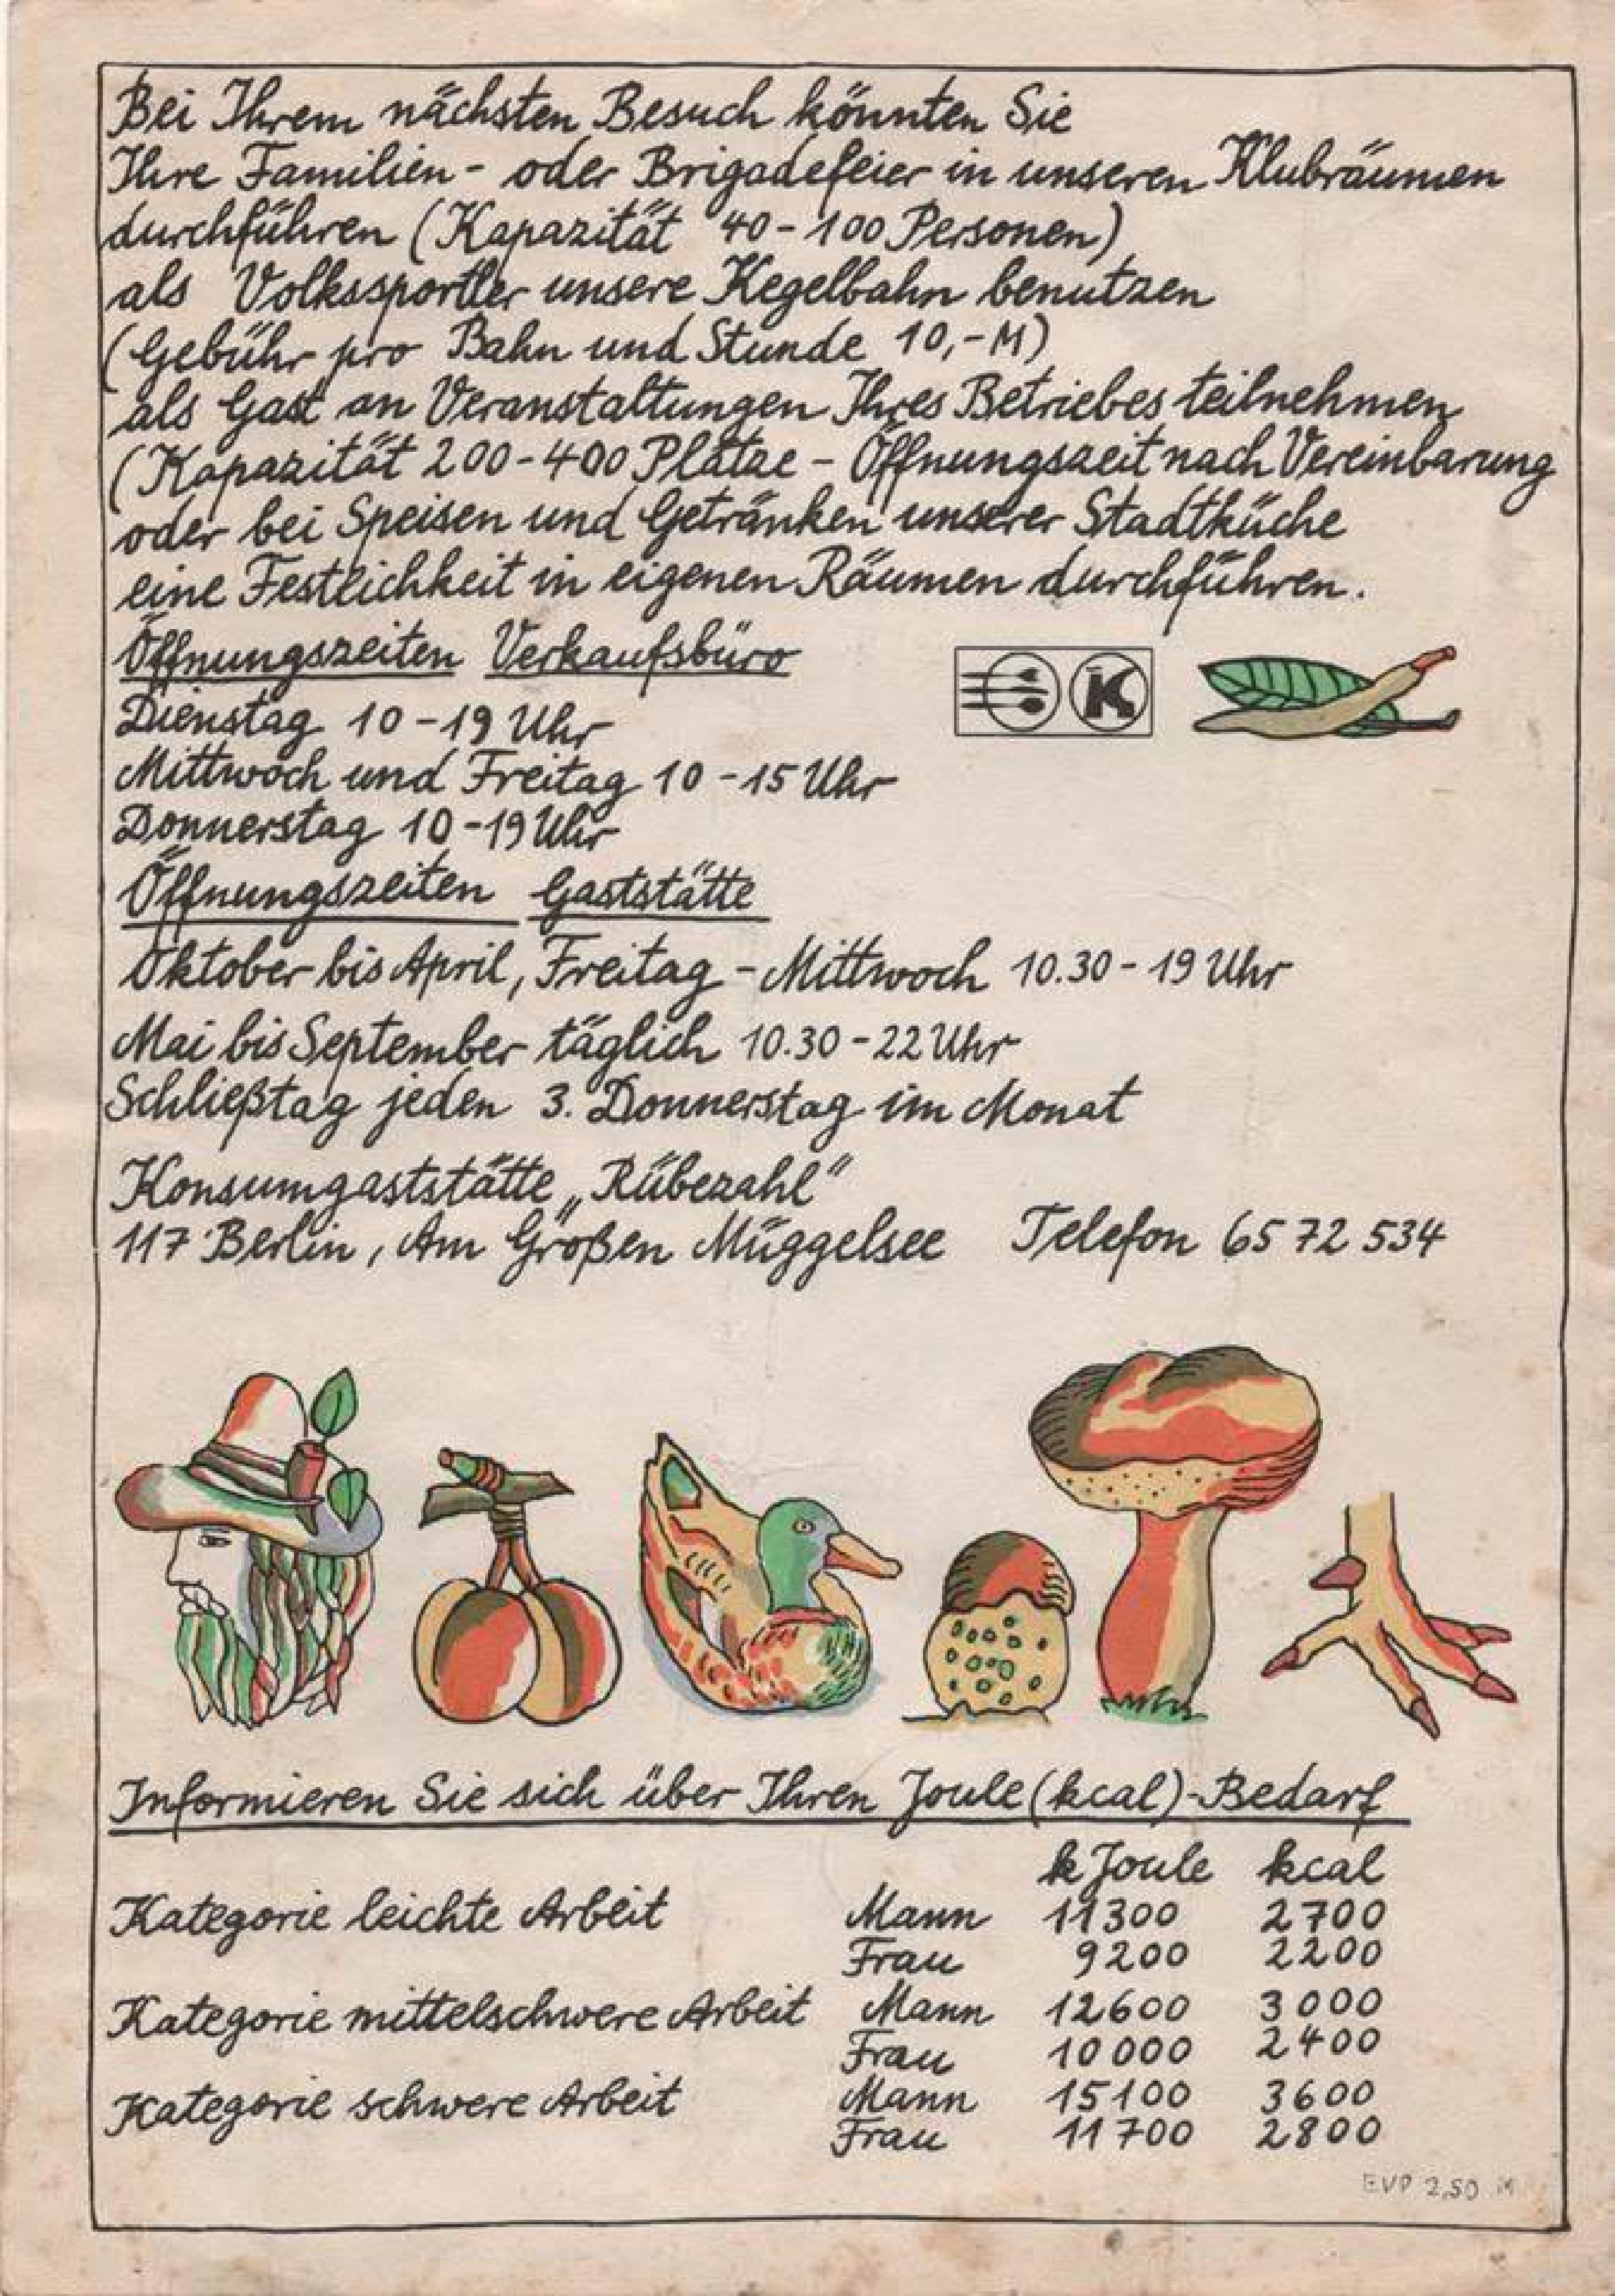 Bei Ihrem nächsten Besuch könnten Sie
Ihre Familien- oder Brigadefeier in unseren Klubräumen
durchführen (Kapazität 40-100 Personen)
als Volkssportler unsere Kegelbahn benutzen
(Gebühr pro Bahn und Stunde 10,-M)
als Gast an Veranstaltungen Ihres Betriebes teilnehmen
(Kapazität 200-400 Plätze - Öffnungszeit nach Vereinbarung
oder bei Speisen und Getränken unserer Stadtküche
eine Festlichkeit in eigenen Räumen durchführen.
Öffnungszeiten Verkaufsbüro
Dienstag 10-19 Uhr
Mittwoch und Freitag 10-15 Uhr
Donnerstag 10-19 Uhr
Öffnungszeiten Gaststätte
Oktober bis April, Freitag - Mittwoch 10.30-19 Uhr
Mai bis September täglich 10.30-22 Uhr
Schließtag jeden 3. Donnerstag im Monat
Konsumgaststätte „Rübezahl"
117 Berlin, Am Großen Müggelsee Telefon 65 72 534
Informieren Sie sich über Ihren Joule (kcal)-Bedarf
k Joule kcal
Kategorie leichte Arbeit Mann 11300 2700
Frau 9200 2200
Kategorie mittelschwere Arbeit Mann 12600 3000
Frau 10000 2400
Kategorie schwere Arbeit Mann 15100 3600
Frau 11700 2800
EVP 2,50 M